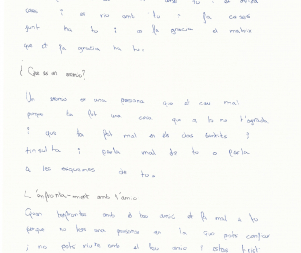 cosa i es riu amb tu i fa coses
junt ha tu i a fa gracia el mateix
que et fa gracia ha tu.
¿Que es un enemic?
Un enemic es una persona que et cau mal
perque ta fet una cosa que a tu no t'agrada
i que ta fet mal en els dos sentits i
t'insulta i parla mal de tu o parla
a les esquenes de tu.
L'enfrontament amb l'amic
Quan t'enfrontes amb el teu amic et fa mal a tu
perque no tens una persona en la que pots confiar
i no pots riure amb el teu amic i estas trist